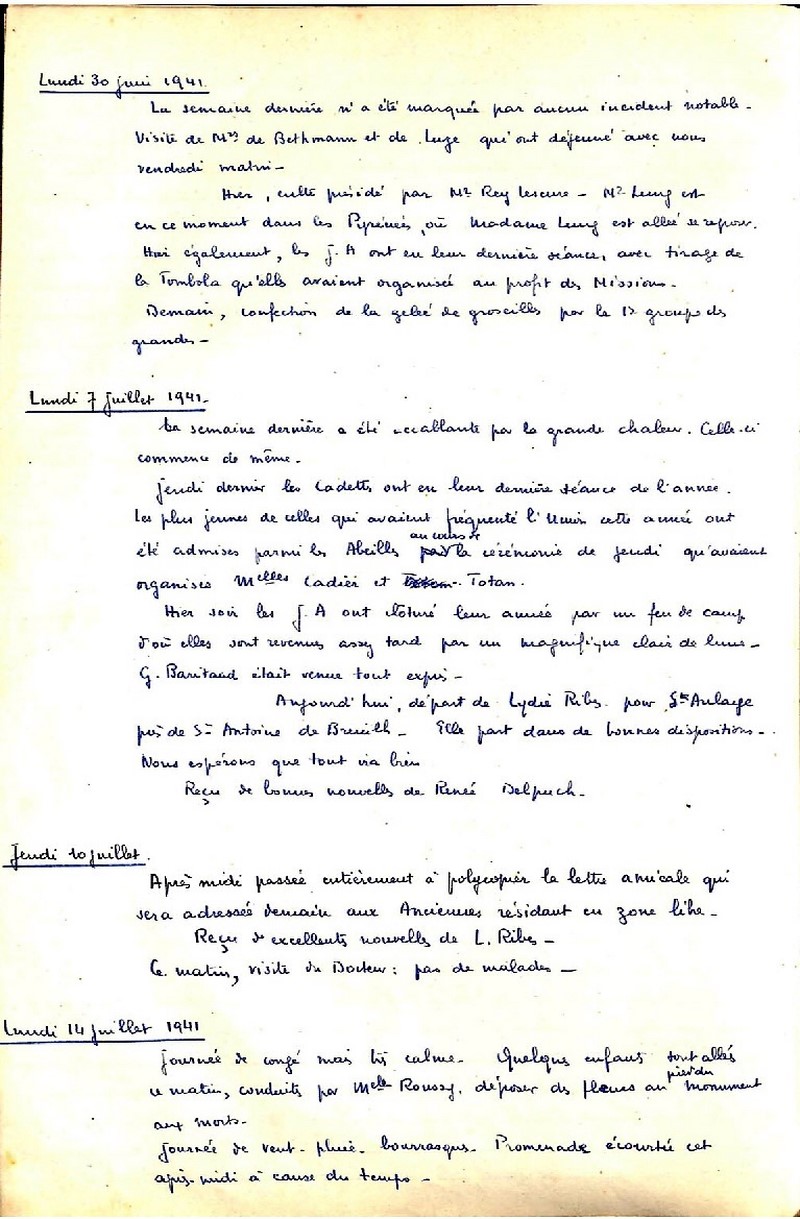 Lundi 30 juin 1941.
La semaine dernière n'a été marquée par aucun incident notable -
Visite de Mrs de Bethmann et de Luze qui ont déjeuné avec nous
vendredi matin -
Hier, culte présidé par Mr. Rey Lescure - Mr. Leung est
en ce moment dans les Pyrénées, où Madame Leung est allée se reposer.
Hier également, les J. A ont eu leur dernière séance, avec tirage de
la Tombola qu'elles avaient organisée au profit des Missions -
Demain, confection de la gelée de groseilles par le Ir groupe des
grandes -
Lundi 7 Juillet 1941.
La semaine dernière a été accablante par la grande chaleur. Celle-ci
commence de même.
Jeudi dernier les Cadettes ont eu leur dernière séance de l'année.
Les plus jeunes de celles qui avaient fréquenté l'Union cette année ont
été admises parmi les Abeilles au cours de la cérémonie de jeudi qu'avaient
organisée Melles Cadier et Totan.
Hier soir les J. A ont clôturé leur année par un feu de camp
d'où elles sont revenues assez tard par un magnifique clair de lune -
G. Baritaud était venue tout exprès -
Aujourd'hui, départ de Lydie Ribes pour St Aulaye
près de St Antoine de Breuilh - Elle part dans de bonnes dispositions -
Nous espérons que tout ira bien
Reçu de bonnes nouvelles de Renée Delpuch.
Jeudi 10 juillet.
Après midi passée entièrement à polycopier la lettre amicale qui
sera adressée demain aux Anciennes résidant en zone libre -
Reçu d'excellentes nouvelles de L. Ribes -
Ce matin, visite du Docteur : pas de malades -
Lundi 14 juillet 1941
Journée de congé mais très calme - Quelques enfants sont allés
ce matin, conduits par Melle Roussy, déposer des fleurs au pied du monument
aux morts -
Journée de vent - pluie - bourrasques - Promenade écourtée cet
après-midi à cause du temps -